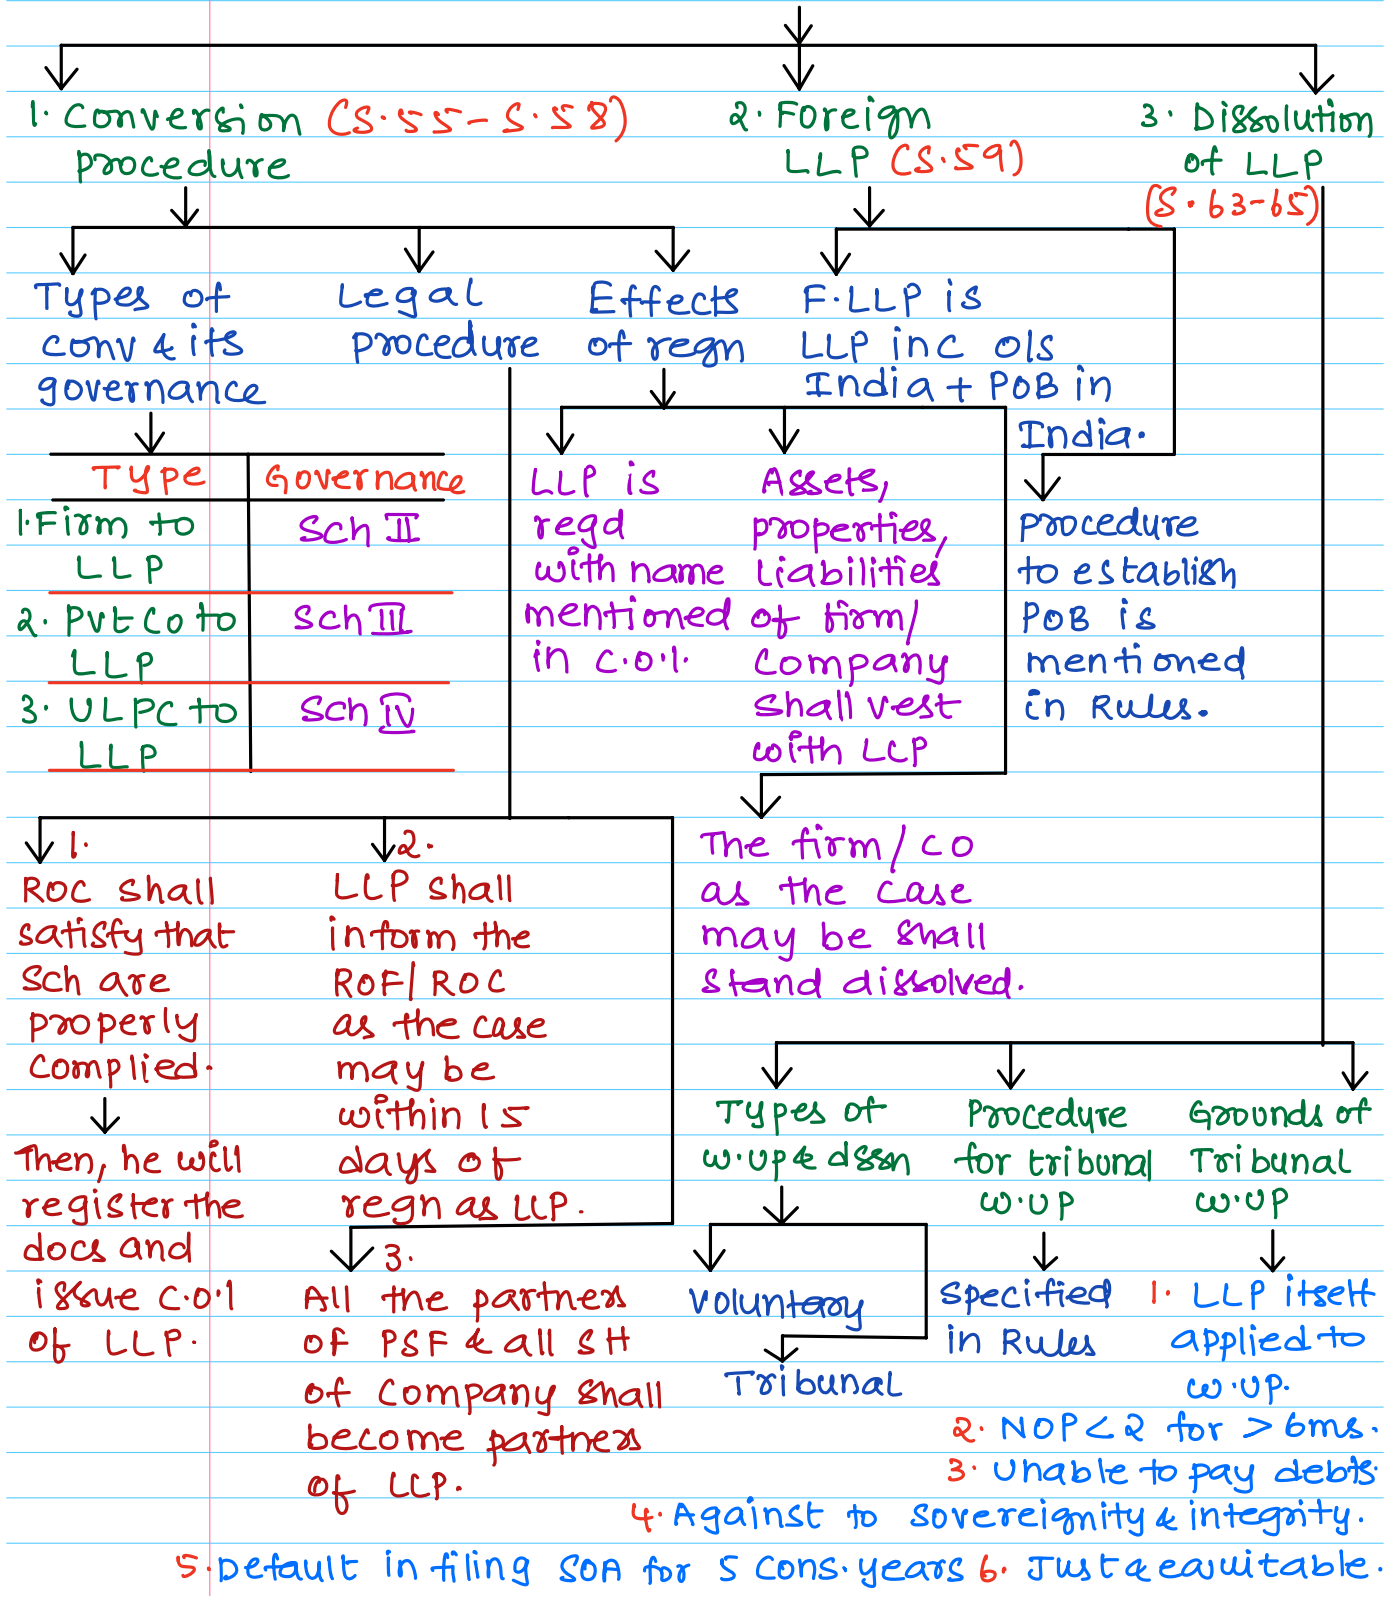 1. Conversion (S.55-S.58)
procedure
2. Foreign
LLP (S.59)
3. Dissolution
of LLP
(S.63-65)
Types of
conv & its
governance
Legal
procedure
Effects
of regn
F.LLP is
LLP inc o/s
India + POB in
India.
Type Governance
1. Firm to
LLP
Sch II
2. Pvt Co to
LLP
Sch III
3. ULPC to
LLP
Sch IV
LLP is
regd
with name
mentioned
in C.O.I.
Assets,
properties,
Liabilities
of firm/
Company
Shall vest
with LLP
procedure
to establish
POB is
mentioned
in Rules.
The firm/CO
as the case
may be shall
stand dissolved.
1.
ROC shall
satisfy that
Sch are
properly
Complied.
Then, he will
register the
docs and
issue C.O.I
of LLP.
2.
LLP shall
inform the
ROF/ROC
as the case
may be
within 15
days of
regn as LLP.
3.
All the partners
of PSF & all SH
of Company shall
become partners
of LLP.
Types of
w.up & dssn
Voluntary
Tribunal
Procedure
for tribunal
w.up
Specified
in Rules
Grounds of
Tribunal
w.up
1. LLP itself
applied to
w.up.
2. NOP<2 for >6ms.
3. Unable to pay debts.
4. Against to sovereignity & integrity.
5. Default in filing SOA for 5 Cons. years 6. Just & eauuitable.